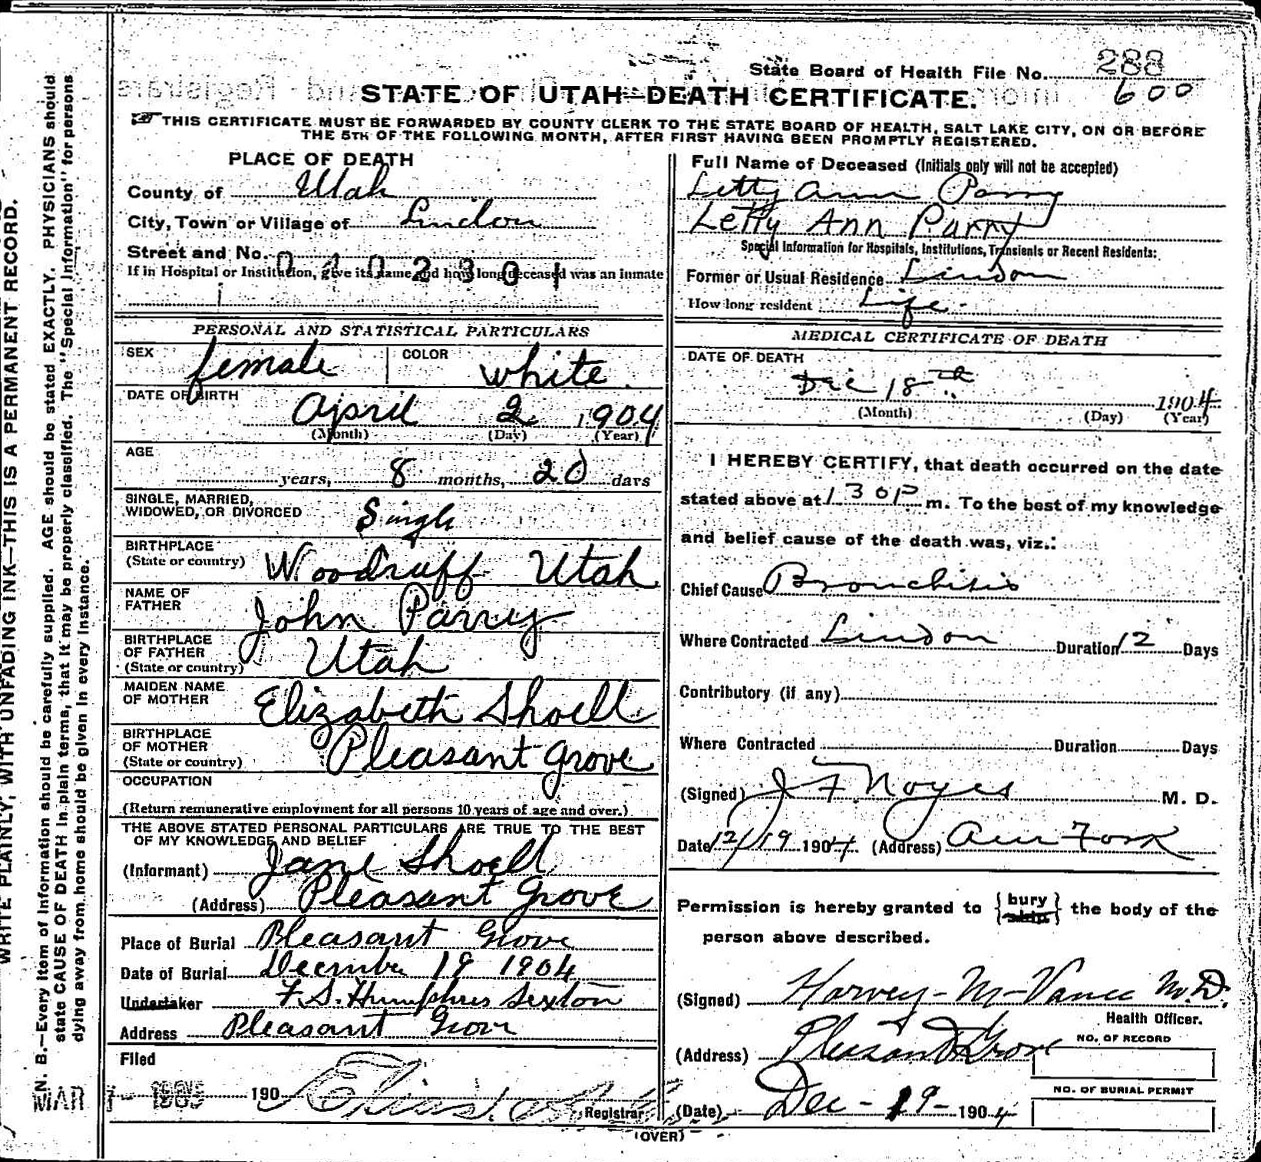 State Board of Health File No. 288
600
STATE OF UTAH—DEATH CERTIFICATE.
THIS CERTIFICATE MUST BE FORWARDED BY COUNTY CLERK TO THE STATE BOARD OF HEALTH, SALT LAKE CITY, ON OR BEFORE
THE 5TH OF THE FOLLOWING MONTH, AFTER FIRST HAVING BEEN PROMPTLY REGISTERED.
WRITE PLAINLY, WITH UNFADING INK—THIS IS A PERMANENT RECORD.
N. B.—Every item of information should be carefully supplied. AGE should be stated EXACTLY. PHYSICIANS should
state CAUSE OF DEATH in plain terms, that it may be properly classified. The "Special Information" for persons
dying away from home should be given in every instance.
PLACE OF DEATH
County of Utah
City, Town or Village of Lindon
Street and No. 0402301
If in Hospital or Institution, give its name and how long deceased was an inmate
PERSONAL AND STATISTICAL PARTICULARS
SEX female COLOR white
DATE OF BIRTH April 2 1904
(Month) (Day) (Year)
AGE
years, 8 months, 20 days
SINGLE, MARRIED,
WIDOWED, OR DIVORCED Single
BIRTHPLACE
(State or country) Woodruff Utah
NAME OF
FATHER John Parry
BIRTHPLACE
OF FATHER
(State or country) Utah
MAIDEN NAME
OF MOTHER Elizabeth Shoell
BIRTHPLACE
OF MOTHER
(State or country) Pleasant Grove
OCCUPATION
(Return remunerative employment for all persons 10 years of age and over.)
THE ABOVE STATED PERSONAL PARTICULARS ARE TRUE TO THE BEST
OF MY KNOWLEDGE AND BELIEF
(Informant) Jane Shoell
(Address) Pleasant Grove
Place of Burial Pleasant Grove
Date of Burial December 19 1904
Undertaker F. S. Humphris Sexton
Address Pleasant Grov
Filed
MAR 190
Registrar
Full Name of Deceased (Initials only will not be accepted)
Letty Ann Parry
Letty Ann Parry
Special Information for Hospitals, Institutions, Transients or Recent Residents:
Former or Usual Residence Lindon
How long resident Life
MEDICAL CERTIFICATE OF DEATH
DATE OF DEATH
Dec 18th 1904
(Month) (Day) (Year)
I HEREBY CERTIFY, that death occurred on the date
stated above at 1 30 P m. To the best of my knowledge
and belief cause of the death was, viz.:
Chief Cause Bronchitis
Where Contracted Lindon Duration 12 Days
Contributory (if any)
Where Contracted Duration Days
(Signed) J F Noyes M. D.
Date 12/19 1904. (Address) Am Fork
Permission is hereby granted to {bury ship} the body of the
person above described.
(Signed) Harvey M Vance M.D.
Health Officer.
(Address) Pleasant Grove
NO. OF RECORD
NO. OF BURIAL PERMIT
(Date) Dec - 19 - 1904
(OVER)